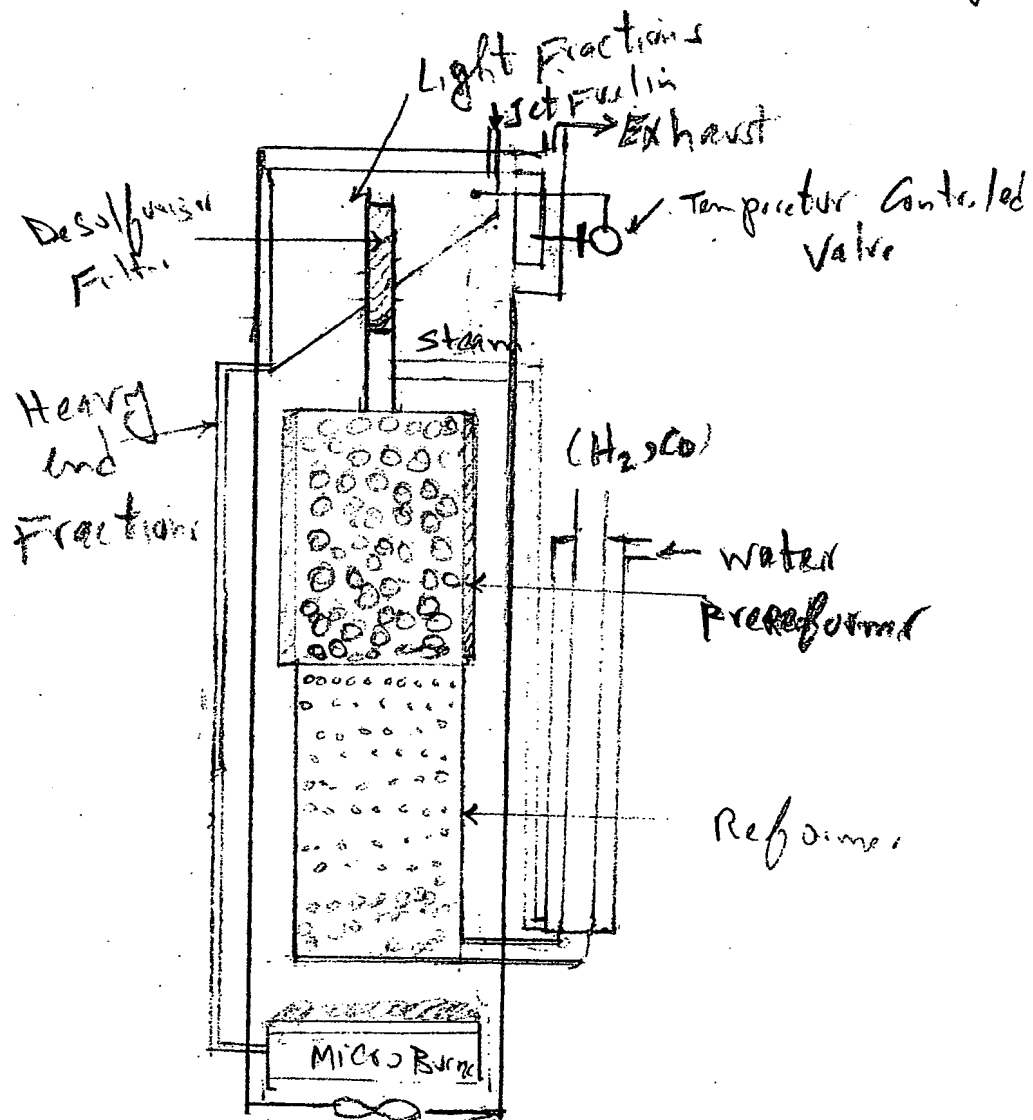 Light Fractions
Jet Fuel in
Exhaust
Desulfuriser
Filter
Temperatur Controled
Valve
Steam
Heavy
end
Fractions
(H2, CO)
water
prereformer
Reformer
Micro Burne